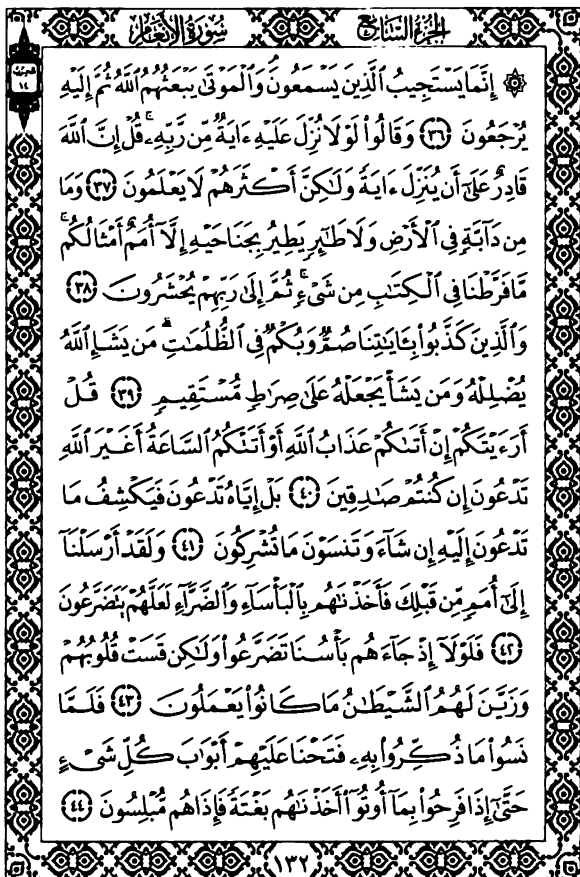 سُورَةُ الأَنْعَام
الجُزْءُ السَّابِعُ
۞ إِنَّمَا يَسْتَجِيبُ ٱلَّذِينَ يَسْمَعُونَۘ وَٱلْمَوْتَىٰ يَبْعَثُهُمُ ٱللَّهُ ثُمَّ إِلَيْهِ
يُرْجَعُونَ ٣٦ وَقَالُوا۟ لَوْلَا نُزِّلَ عَلَيْهِ ءَايَةٌ مِّن رَّبِّهِۦۚ قُلْ إِنَّ ٱللَّهَ
قَادِرٌ عَلَىٰٓ أَن يُنَزِّلَ ءَايَةً وَلَٰكِنَّ أَكْثَرَهُمْ لَا يَعْلَمُونَ ٣٧ وَمَا
مِن دَآبَّةٍ فِى ٱلْأَرْضِ وَلَا طَٰٓئِرٍ يَطِيرُ بِجَنَاحَيْهِ إِلَّآ أُمَمٌ أَمْثَالُكُمۚ
مَّا فَرَّطْنَا فِى ٱلْكِتَٰبِ مِن شَىْءٍۚ ثُمَّ إِلَىٰ رَبِّهِمْ يُحْشَرُونَ ٣٨
وَٱلَّذِينَ كَذَّبُوا۟ بِـَٔايَٰتِنَا صُمٌّ وَبُكْمٌ فِى ٱلظُّلُمَٰتِۗ مَن يَشَإِ ٱللَّهُ
يُضْلِلْهُ وَمَن يَشَأْ يَجْعَلْهُ عَلَىٰ صِرَٰطٍ مُّسْتَقِيمٍ ٣٩ قُلْ
أَرَءَيْتَكُمْ إِنْ أَتَىٰكُمْ عَذَابُ ٱللَّهِ أَوْ أَتَتْكُمُ ٱلسَّاعَةُ أَغَيْرَ ٱللَّهِ
تَدْعُونَ إِن كُنتُمْ صَٰدِقِينَ ٤٠ بَلْ إِيَّاهُ تَدْعُونَ فَيَكْشِفُ مَا
تَدْعُونَ إِلَيْهِ إِن شَآءَ وَتَنسَوْنَ مَا تُشْرِكُونَ ٤١ وَلَقَدْ أَرْسَلْنَآ
إِلَىٰٓ أُمَمٍ مِّن قَبْلِكَ فَأَخَذْنَٰهُم بِٱلْبَأْسَآءِ وَٱلضَّرَّآءِ لَعَلَّهُمْ يَتَضَرَّعُونَ
٤٢ فَلَوْلَآ إِذْ جَآءَهُم بَأْسُنَا تَضَرَّعُوا۟ وَلَٰكِن قَسَتْ قُلُوبُهُمْ
وَزَيَّنَ لَهُمُ ٱلشَّيْطَٰنُ مَا كَانُوا۟ يَعْمَلُونَ ٤٣ فَلَمَّا
نَسُوا۟ مَا ذُكِّرُوا۟ بِهِۦ فَتَحْنَا عَلَيْهِمْ أَبْوَٰبَ كُلِّ شَىْءٍ
حَتَّىٰٓ إِذَا فَرِحُوا۟ بِمَآ أُوتُوٓا۟ أَخَذْنَٰهُم بَغْتَةً فَإِذَا هُم مُّبْلِسُونَ ٤٤
١٣٢